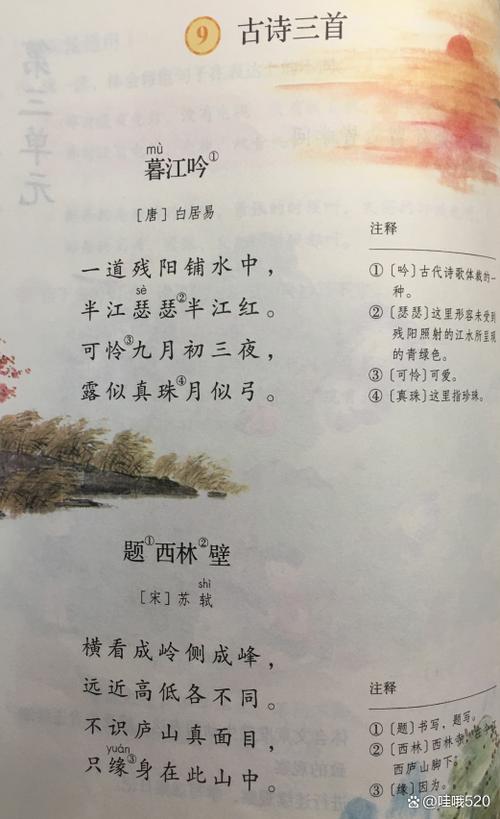 9 古诗三首
第三单元
mù
暮江吟①
[唐] 白居易
一道残阳铺水中，
sè
半江瑟瑟②半江红。
可怜③九月初三夜，
露似真珠④月似弓。
注释
①〔吟〕古代诗歌体裁的一
种。
②〔瑟瑟〕这里形容未受到
残阳照射的江水所呈现
的青绿色。
③〔可怜〕可爱。
④〔真珠〕这里指珍珠。
题①西林②壁
shì
[宋] 苏轼
横看成岭侧成峰，
远近高低各不同。
不识庐山真面目，
yuán
只缘③身在此山中。
注释
①〔题〕书写，题写。
②〔西林〕西林寺，
西庐山脚下。
③〔缘〕因为。
@哇哦520